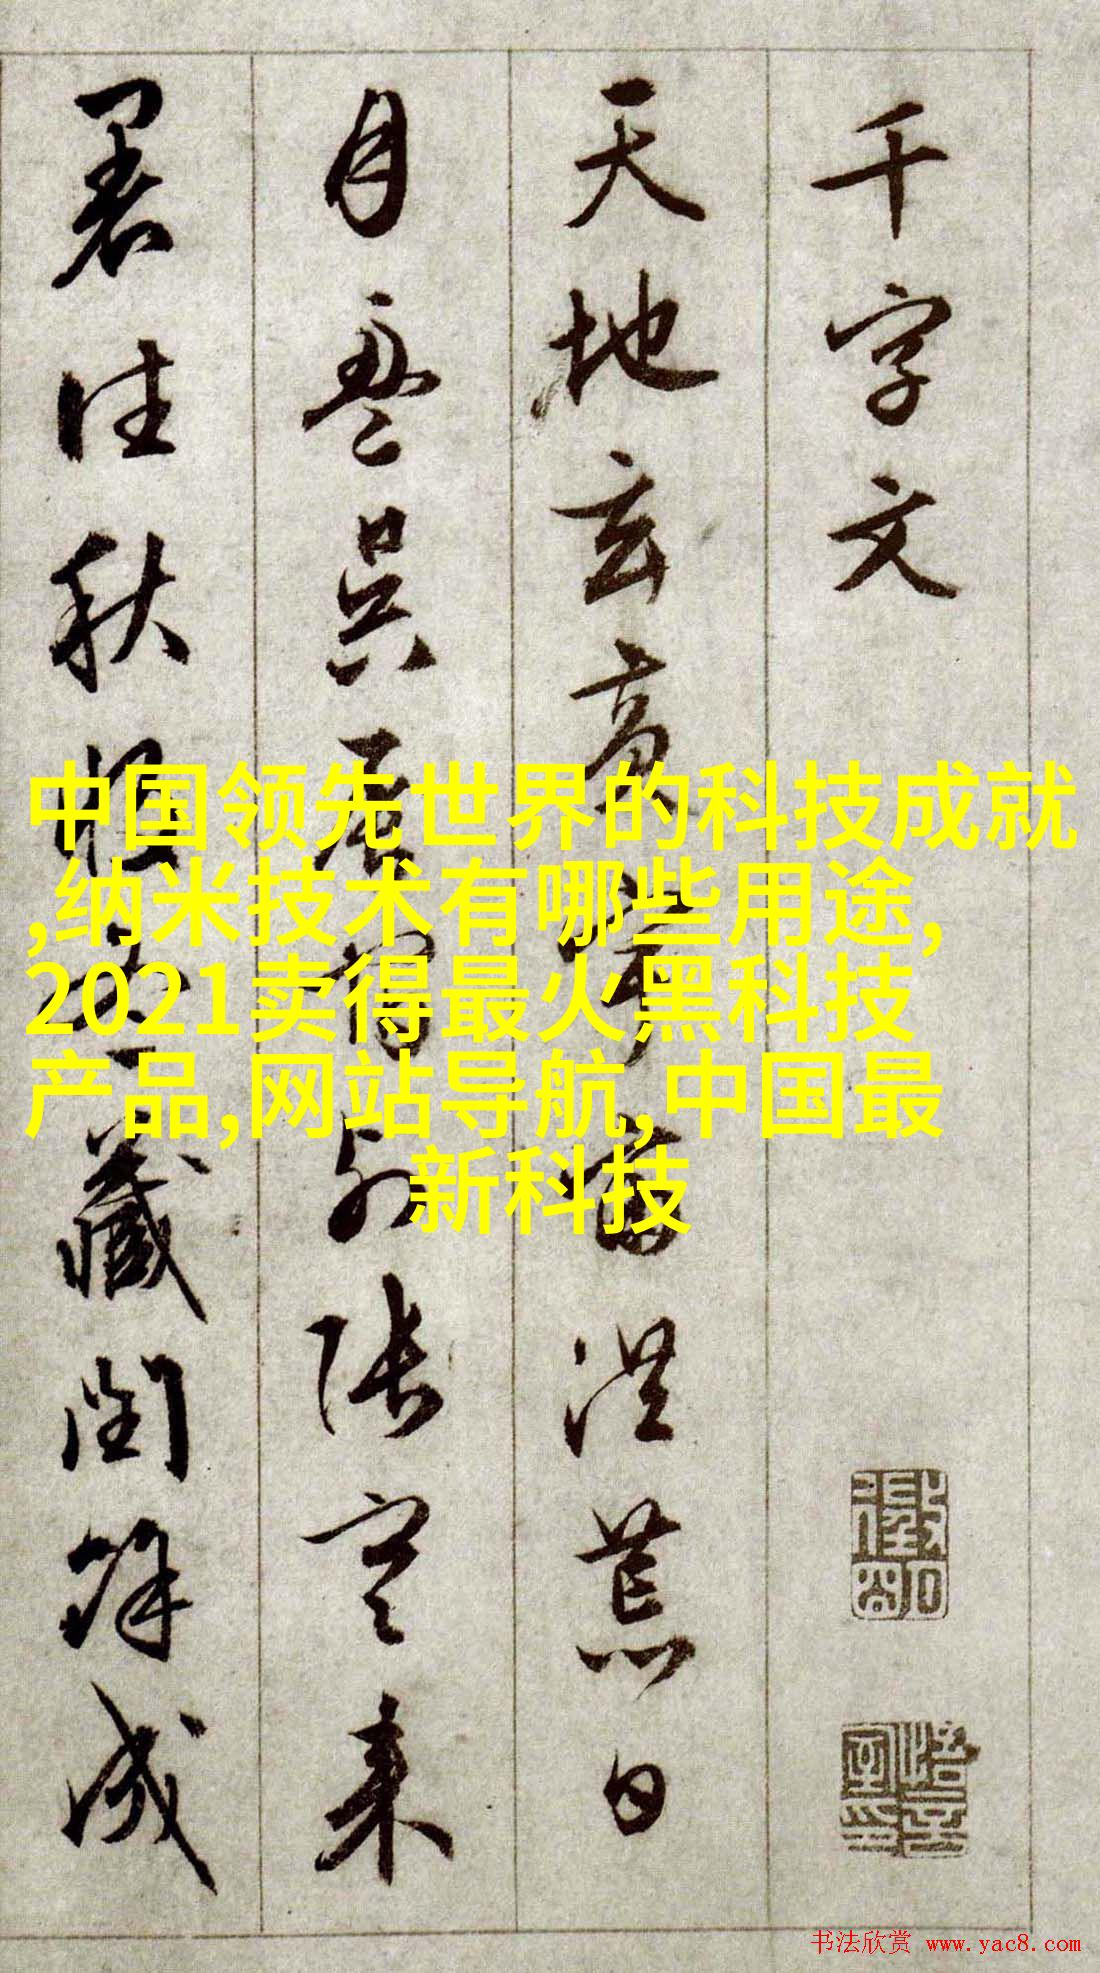 千字文
天地玄黄宇宙洪荒日
月盈昃辰宿列張寒来
暑往秋收冬藏閏餘成
中国领先世界的科技成就
,纳米技术有哪些用途,
2021卖得最火黑科技
产品,网站导航,中国最
新科技
书法欣赏 www.yac8.com